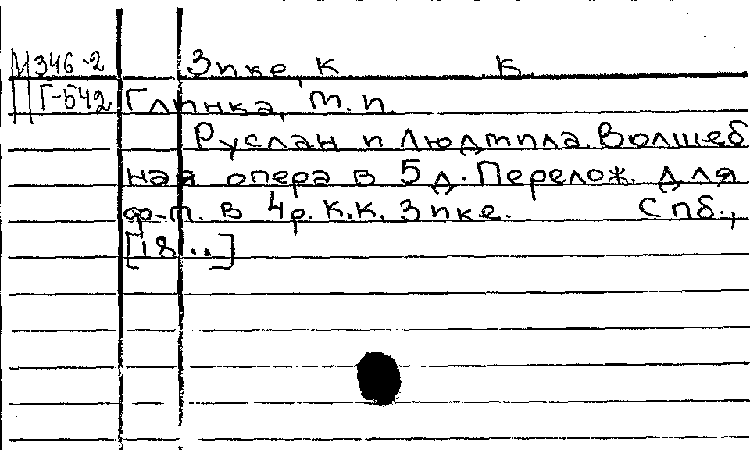 М346-2 Зике, К К.
Г-542 Глинка, М. И.
Руслан и Людмила. Волшеб
ная опера в 5 д. Перелож. для
ф-п. в 4 р. К.К. Зике. Спб.,
[18..]